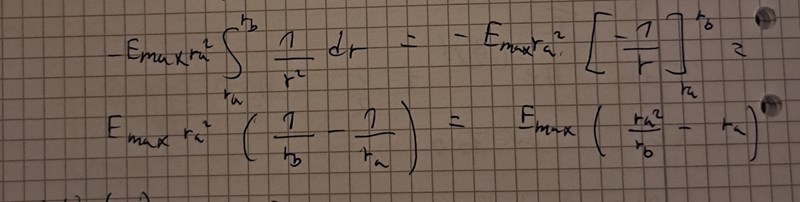 -Emax ra² ∫_{ra}^{rb} 1/r² dr = - Emax ra² [-1/r]_{ra}^{rb} =
Emax ra² (1/rb - 1/ra) = Emax (ra²/rb - ra)